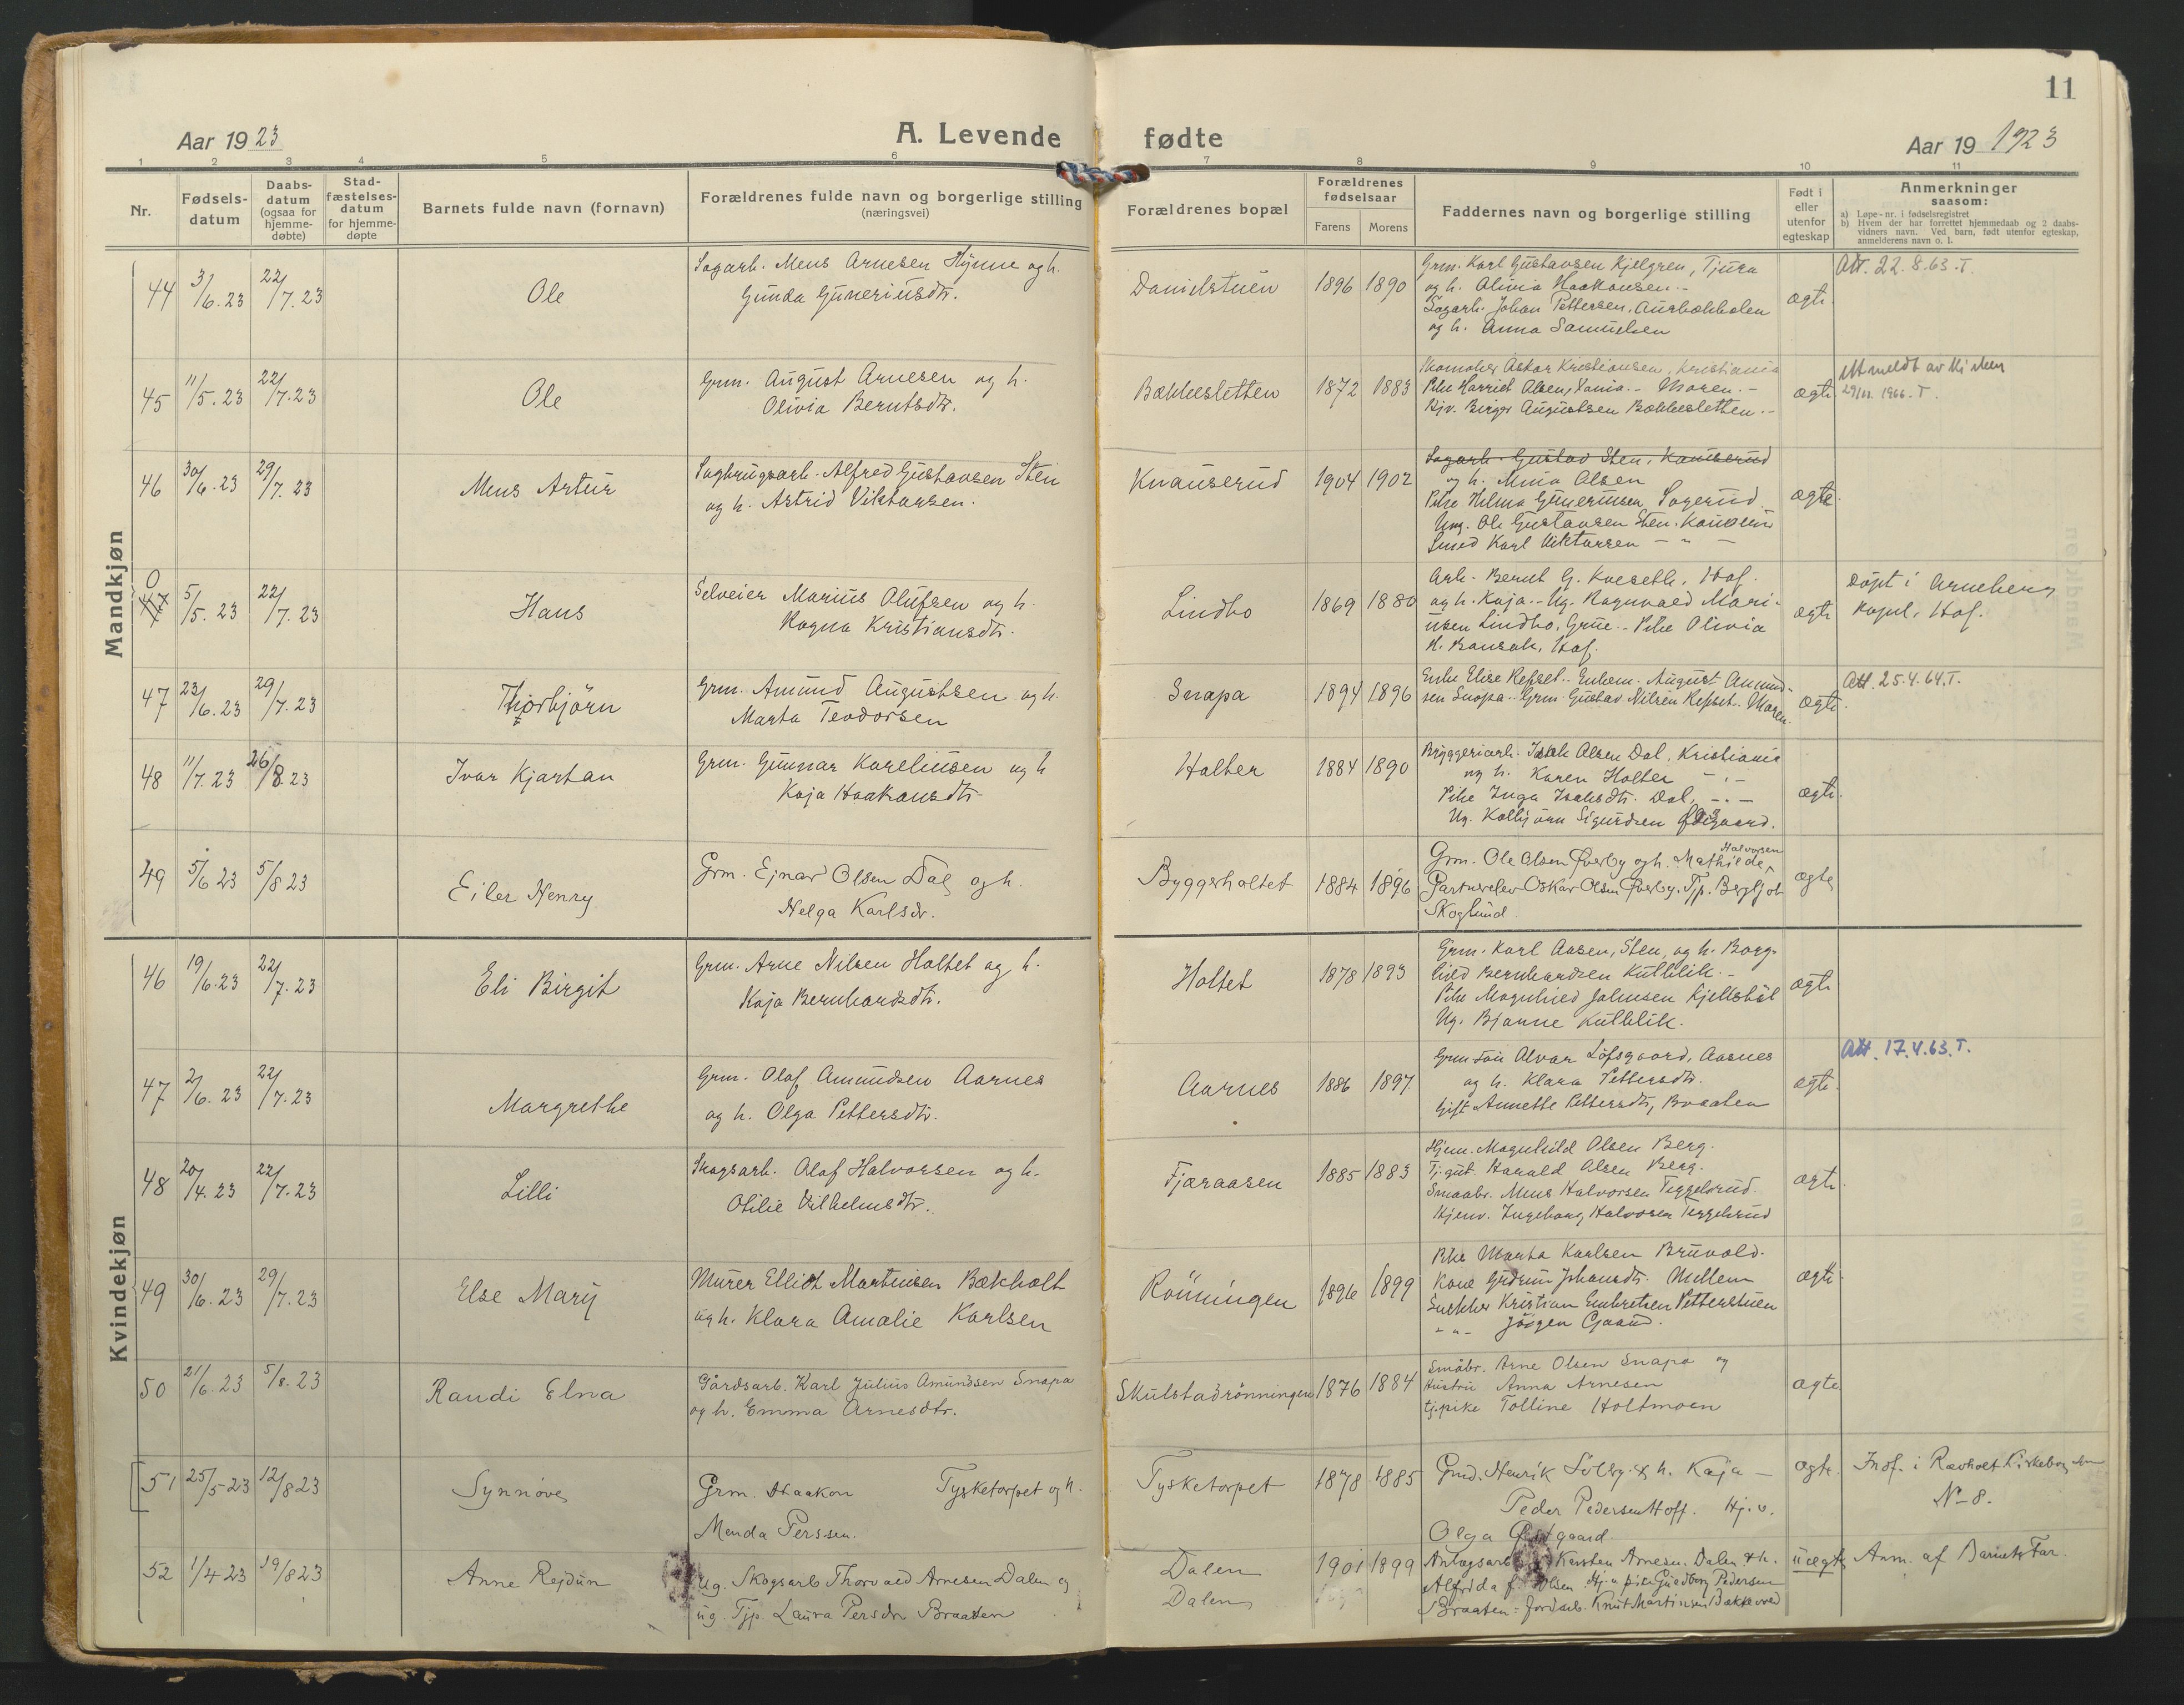 11
Aar 1923
A. Levende fødte
Aar 19 1923
1 2 3 4 5 6 7 8 9 10 11
Nr.
Fødsels-
datum
Daabs-
datum
(ogsaa for
hjemme-
døbte)
Stad-
fæstelses-
datum
for hjemme-
døpte
Barnets fulde navn (fornavn)
Forældrenes fulde navn og borgerlige stilling
(næringsvei)
Forældrenes bopæl
Forældrenes
fødselsaar
Farens Morens
Faddernes navn og borgerlige stilling
Født i
eller
utenfor
egteskap
Anmerkninger
saasom:
a) Løpe-nr. i fødselsregistret
b) Hvem der har forrettet hjemmedaab og 2 daabs-
vidners navn. Ved barn, født utenfor egteskap,
anmelderens navn o. l.
Mandkjøn
44 3/6.23 22/7.23 Ole
Sagarb. Mens Arnesen Hynne og h.
Gunda Guneriusdtr.
Danielstuen 1896 1890
Grm. Karl Gustavsen Kjelgren, Tjura
og h. Olina Haakonsen.-
Sagarb. Johan Pettersen, Aurbækholen
og h. Anna Samuelsen
ægte
Att. 22.8.63.T.
45 11/5.23 22/7.23 Ole
Grm. August Arnesen og h.
Olivia Berntsdtr.
Bækkesletten 1872 1883
Skomaker Oskar Kristiansen, Kristiania
Pike Harriet Olsen, - Moren.-
Kjv. Birger Augustsen Bækkesletten.-
ægte
Utmeldt av
29/11. 1966. T.
46 30/6.23 29/7.23 Mens Artur
Sagbrugsarb. Alfred Gustavsen Sten
og h. Astrid Viktorsen.
Knauserud 1904 1902
Sagarb. Gustav Sten, Knauserud
og h. Mina Olsen
Pike Helma Guneriusen Sagerud
Ung. Ole Gustavsen Sten.
Smed Karl Viktorsen - " -
ægte
0 47 5/5.23 22/7.23 Hans
Selveier Marius Olufsen og h.
Magna Kristiansdtr.
Lindbo 1869 1880
Arb. Bernt G. Kveseth, Hof.
og h. Kaja.- Ug. Ragnvald Mari-
usen Lindbo, Grue.- Pike Olivia
Hof.
ægte
Døpt i Arneberg
kapel, Hof.
47 23/6.23 29/7.23 Thorbjörn
Grm. Amund Augustsen og h.
Marta Teodorsen
Snapa 1894 1896
Enke Elise Repset.- Enkem. August Amund-
sen Snapa.- Grm. Gustav Nilsen Repset. Moren.
ægte
Att. 25.4.64.T.
48 11/7.23 26/8.23 Ivar Kjartan
Grm. Gunnar Kareliusen og h
Kaja Haakonsdtr.
Halter 1884 1890
Bryggeriarb. Isak Olsen Dal, Kristiania
og h. Karen Holter - " -
Pike Inga Isaksdtr. Dal, - " -
Ug. Kolbjörn Sigurdsen
ægte
49 5/6 23 5/8 23 Eiler Henry
Grm. Ejnar Olsen Dal og h.
Helga Karlsdr.
Byggerholtet 1884 1896
Grm. Ole Olsen Øverby og h. Mathilde Halvorsen
Gartnerelev Oskar Olsen Øverby. Tjp. Bergljot
Skoglund
ægte
Kvindekjøn
46 19/6.23 22/7.23 Eli Birgit
Grm. Arne Nilsen Holtet og h.
Kaja Bernhardsdtr.
Holtet 1878 1893
Grm. Karl Aasen, Sten, og h. Borg-
hild Bernhardsen Kulblik.-
Pike Magnhild Johnsen Kjellsböl
Ug. Bjarne Kulblik.
ægte
47 2/6.23 22/7.23 Margrethe
Grm. Olaf Amundsen Aarnes
og h. Olga Pettersdtr.
Aarnes 1886 1897
Grm. Alvar Löfsgaard, Aasnes
og h. Klara Pettersdtr.
Gift Annette Pettersdtr, Braaten
ægte
Att. 17.4.63.T.
48 20/4.23 22/7.23 Lilli
Skogsarb. Olaf Halvorsen og h.
Otilie Vilhelmsdtr.
Fjæraasen 1885 1883
Hjem. Magnhild Olsen Berg.
Tj.gut Harald Olsen Berg.
Smaabr. Mens Halvorsen Teggelsrud.
Hjemv. Ingeborg Halvorsen Teggelsrud
ægte
49 30/6.23 29/7.23 Else Mary
Murer Elliot Martinsen Bækholt
og h. Klara Amalie Karlsen
Rönningen 1896 1899
Pike Marta Karlsen Bruvold.
Kone Gudrun Johansdtr. Mellem
Snekker Kristian Embretsen Petterstuen
- " - Jörgen Gaard.
ægte
50 21/6.23 5/8.23 Randi Elna
Gårdsarb. Karl Julius Amundsen Snapa
og h. Emma Arnesdtr.
Skulstadrönningen 1876 1884
Småbr. Arne Olsen Snapa og
Hustru Anna Arnesen
tj.pike Tolline Holtmoen
ægte
51 25/5-23 12/8 23 Synnøve
Grm. Haakon Tysketorpet og h.
Menda Perssen.
Tysketorpet 1878 1885
Grmd. Henrik Solby & h. Kaja -
Peder Pedersen Hoff. Hj. v.
Olga gaard.
ægte
Indf. i Ravholt Kirkebog
No 8.
52 1/4 23 19/8 23 Anne Rejdun
Ug. Skogsarb Thorvald Arnesen Dalen og
ug. Tjp. Laura Persdr Braaten
Dalen
Dalen
1901 1899
Anlægsarb. Karsten Arnesen Dalen & h.
Alfrida f. Olsen. Hj.v. pike Guldborg Pedersen
Braaten - Jordarb. Knut Martinsen Bækkevold
uægte
Anm. af Barnets Far.